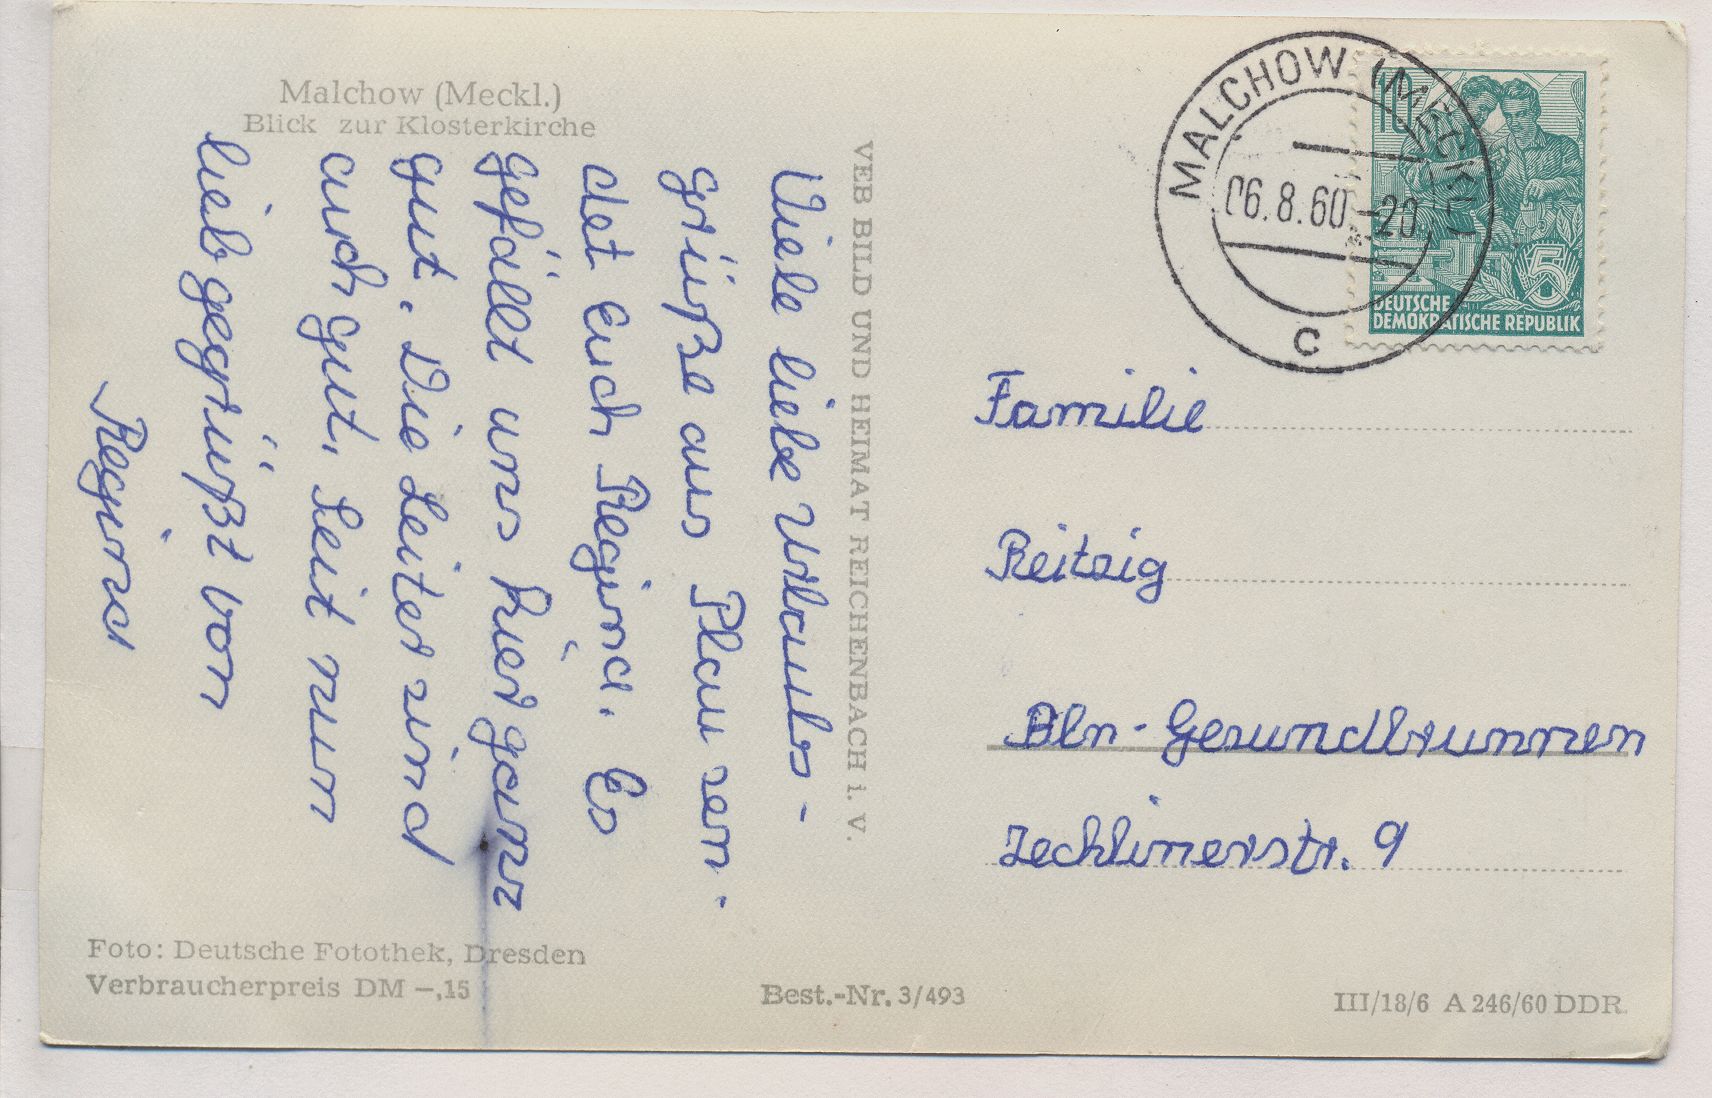 Malchow (Meckl.)
Blick zur Klosterkirche
Viele liebe Urlaubs-
grüße aus Plau sen-
det Euch Regina. Es
gefällt uns hier ganz
gut. Die Leiter sind
auch gut. Seit nun
lieb gegrüßt von
Regina
VEB BILD UND HEIMAT REICHENBACH i. V.
MALCHOW (MECKL)
06.8.60-20
c
10
5
DEUTSCHE
DEMOKRATISCHE REPUBLIK
Familie
Reitzig
Bln-Gesundbrunnen
Zechlinerstr. 9
Foto: Deutsche Fotothek, Dresden
Verbraucherpreis DM –,15
Best.-Nr. 3/493
III/18/6 A 246/60 DDR